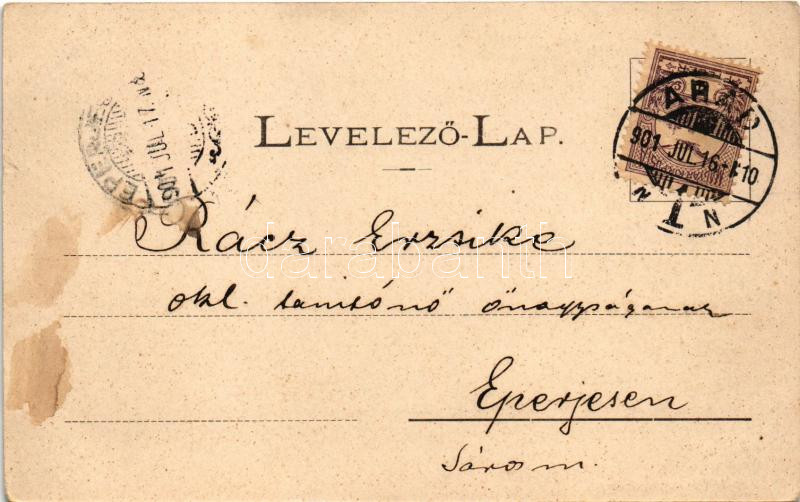 LEVELEZŐ-LAP.
ARAD
901 JUL. 16.
N T N
EPERJES
901 JUL. 17.
Rácz Erzsike
okl. tanitónő önagyságának
Eperjesen
Sáros m.
darabanth